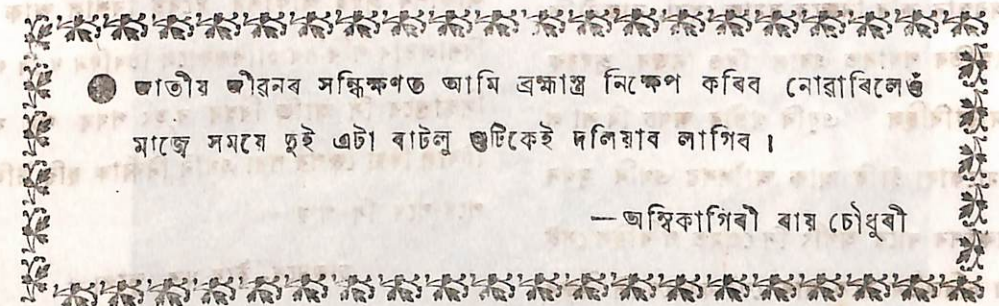 ● জাতীয় জীৱনৰ সন্ধিক্ষণত আমি ব্ৰহ্মাস্ত্ৰ নিক্ষেপ কৰিব নোৱাৰিলেও
মাজে সময়ে দুই এটা বাটলু গুটিকেই দলিয়াব লাগিব ।
—অম্বিকাগিৰী ৰায় চৌধুৰী